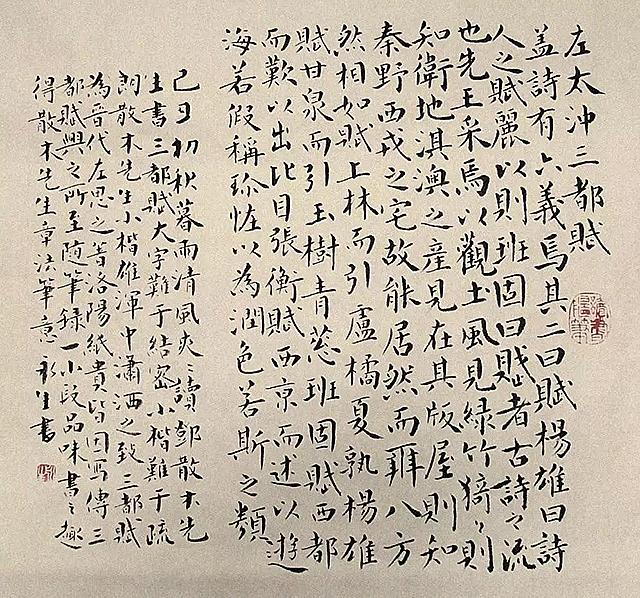 左太沖三都賦
盖詩有六義焉其二曰賦楊雄曰詩
人之賦麗以則班固曰賦者古詩之流
也先王采焉以觀土風見緑竹猗〻則
知衛地淇澳之產見在其版屋則知
秦野西戎之宅故能居然而辨八方
然相如賦上林而引盧橘夏孰楊雄
賦甘泉而引玉樹青葱班固賦西都
而歎以出比目張衡賦西京而述以遊
海若假稱珍怪以為潤色若斯之類
己丑初秋暮雨清風爽〻讀鄧散木先
生書三都賦大字難于結密小楷難于疏
朗散木先生小楷雄渾中瀟洒之致三都賦
為晉代左思之著洛陽紙貴皆因写傳三
都賦興之所至随筆録一小段品味書之趣
得散木先生章法筆意 永生書